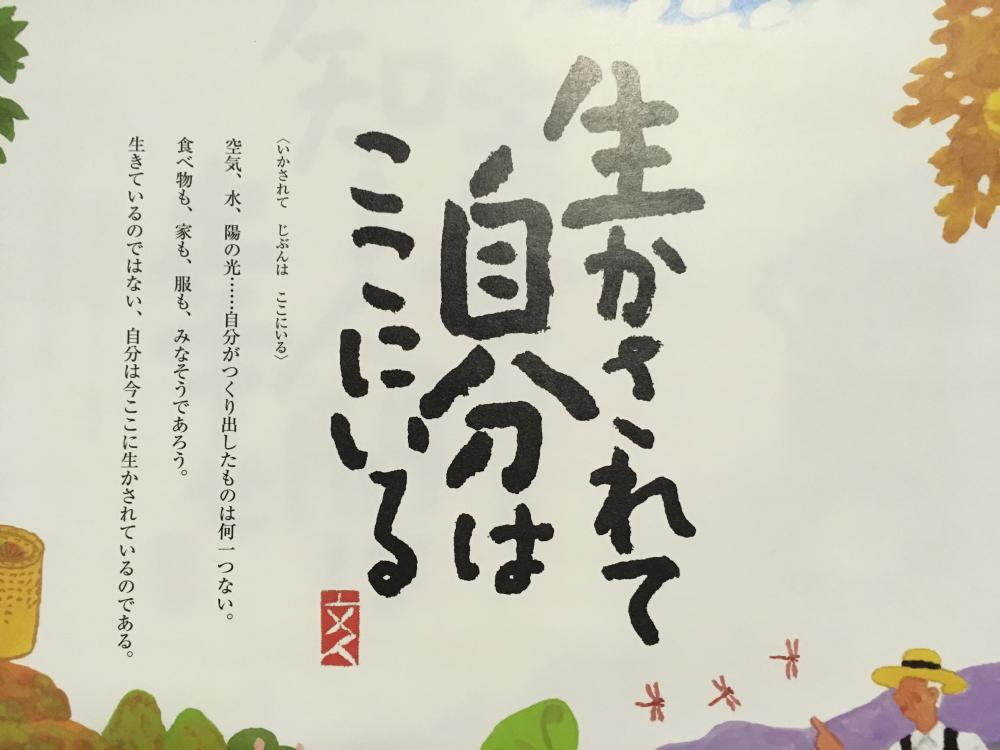 生かされて
自分は
ここにいる
文人
〈いかされて　じぶんは　ここにいる〉
空気、水、陽の光……自分がつくり出したものは何一つない。
食べ物も、家も、服も、みなそうであろう。
生きているのではない、自分は今ここに生かされているのである。